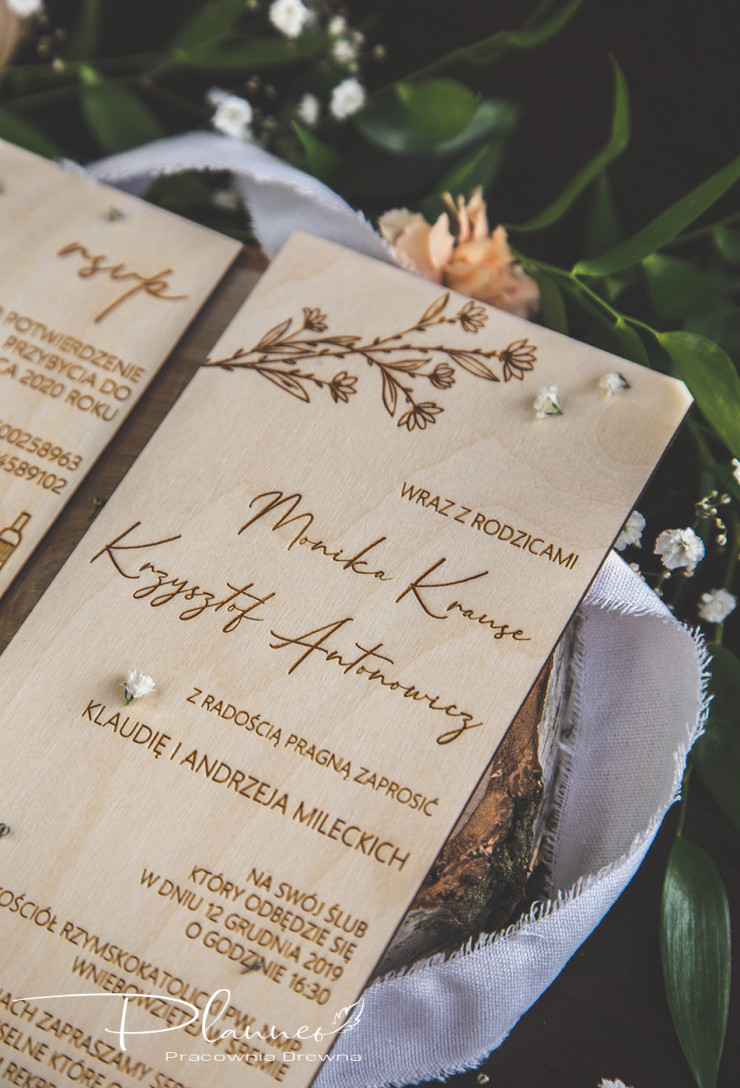 rsvp
POTWIERDZENIE
PRZYBYCIA DO
CA 2020 ROKU
00258963
4589102
WRAZ Z RODZICAMI
Monika Krause
Krzysztof Antonowicz
Z RADOŚCIĄ PRAGNĄ ZAPROSIĆ
KLAUDIĘ I ANDRZEJA MILECKICH
NA SWÓJ ŚLUB
KTÓRY ODBĘDZIE SIĘ
W DNIU 12 GRUDNIA 2019
O GODZINIE 16:30
KOŚCIÓŁ RZYMSKOKATOLICKI PW.
WNIEBOWZIĘCIA
ŚREMIE
ZAPRASZAMY
SELNE KTÓRE
Planneo
Pracownia Drewna